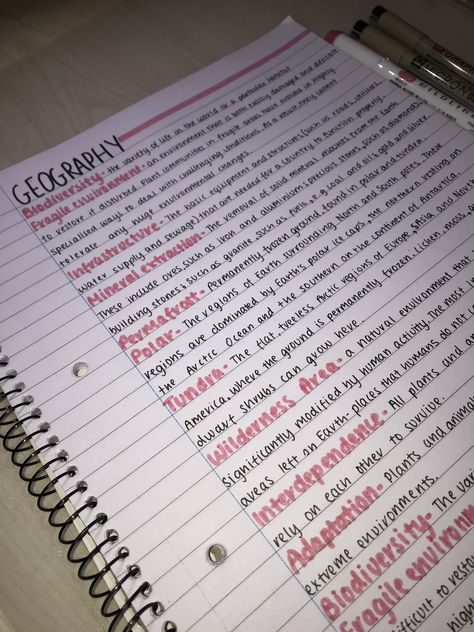 GEOGRAPHY
Biodiversity- The variety of life in the world or a particular habitat.
Fragile environment- an environment that is both easily damaged and difficult
to restore if disturbed. Plant communities in fragile areas have evolved in highly
specialised ways to deal with challenging conditions. As a result they cannot
tolerate any huge environmental changes.
Infrastructure- The basic equipment and structures (such as roads, utilities,
water supply and sewage) that are needed for a country to function properly
Mineral extraction- The removal of solid mineral resources from the earth.
These include ores such as iron and aluminium; precious stones, such as diamonds;
building stones, such as granite, such as fuels, e.g. coal and oil; gold and silver.
Permafrost- Permanently frozen ground found in polar and tundra
Polar- The regions of Earth surrounding North and South poles. These
regions are dominated by Earth's polar ice caps, the northern resting on
the Arctic Ocean and the southern on the continent of Antarctica.
Tundra- The flat, treeless Arctic regions of Europe, Asia and North
America, where the ground is permanently frozen. Lichen, moss,
dwarf shrubs can grow here
Wilderness Area- a natural environment that
significantly modified by human activity. The most
areas left on Earth- places that humans do not
Interdependence- All plants and
rely on each other to survive.
Adaptation- plants and animals
extreme environments.
Biodiversity- The
Fragile environ
difficult to restore